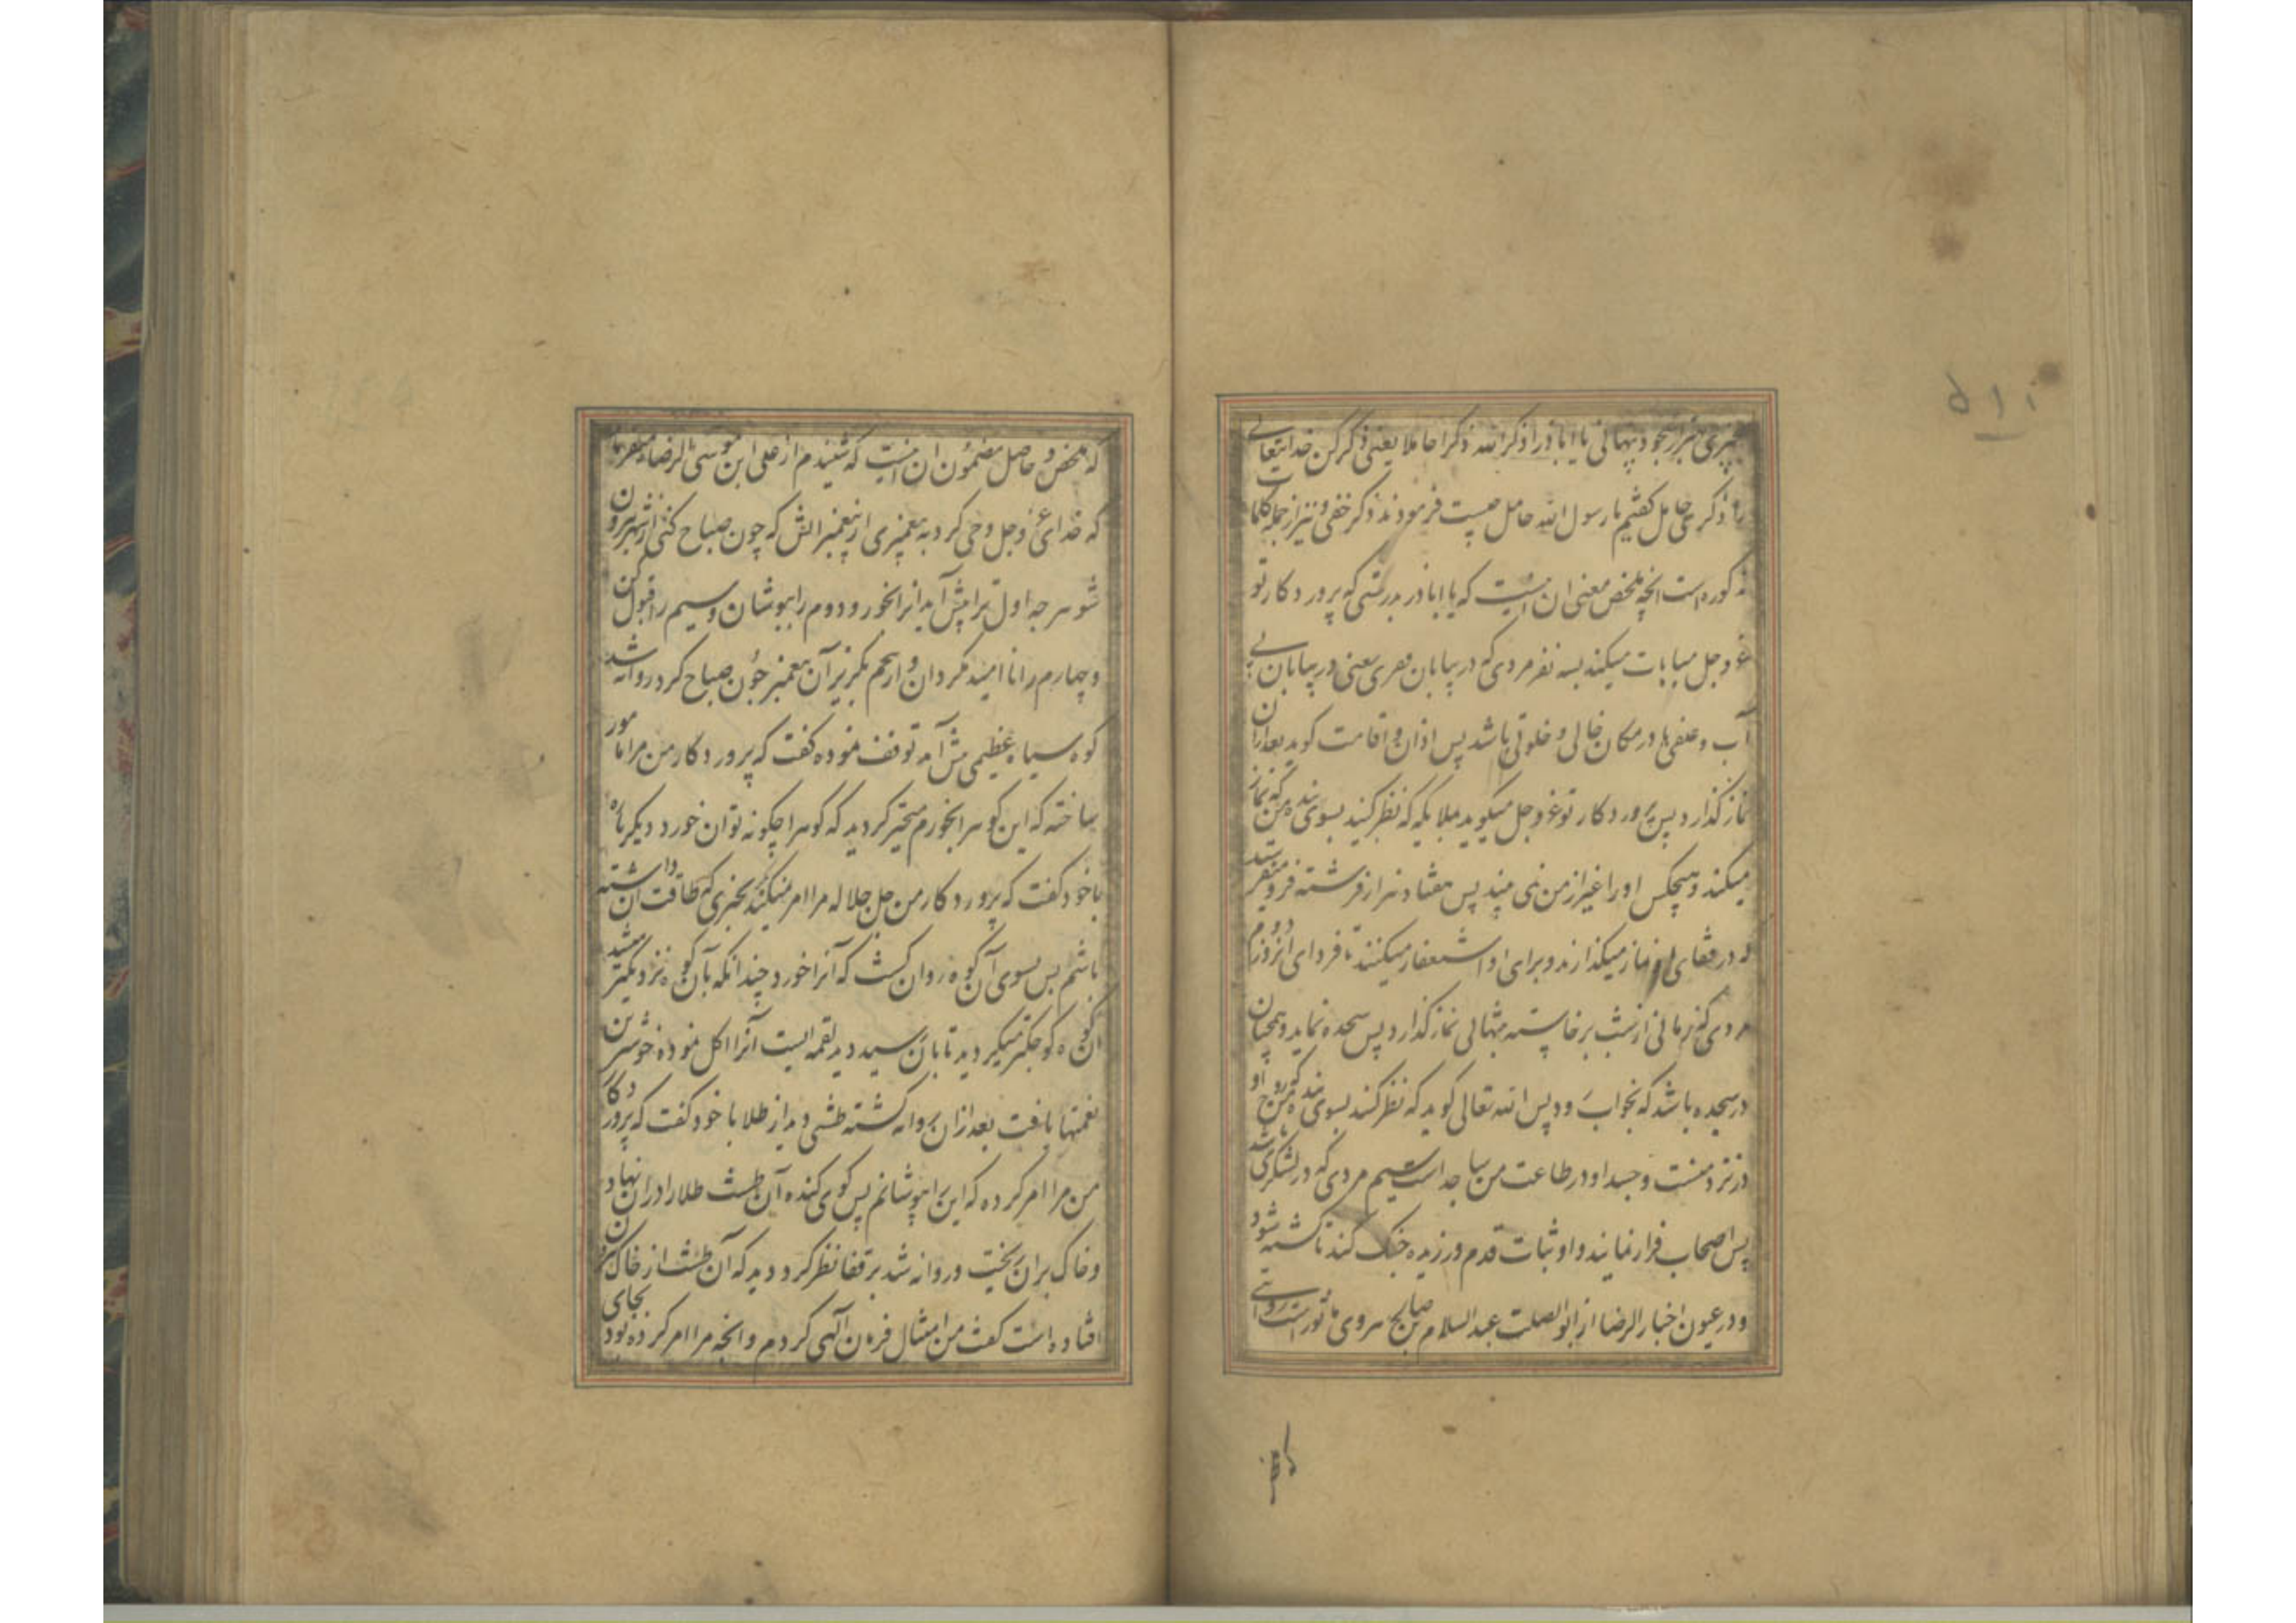 چیزی خبر از بجود پنهانی یا اباذر اذکر الله ذکرا حاملا یعنی ذکر کن خدایتعالی
را ذکری حامل کفتیم یا رسول الله حامل چیست فرمودند ذکر خفی و نیز از جمله کلمات
مذکوره است انچه ملخص معنی ان اینست که یا اباذر بدرستی که پروردکار تو
عز وجل مباهات میکند بسه نفر مردی که در بیابان معری یعنی در بیابان بی
آب و علفی یا در مکان خالی و خلوتی باشد پس اذان و اقامت کوید بعد ازان
نماز کذارد پس پروردکار تو عز وجل میکوید ملایکه که نظر کنید بسوی بنده من که نماز
میکند و هیچکس او را غیر از من نمی بیند پس هفتاد هزار فرشته فرو میفرستد
که در قفای او نماز میکذارند و برای او استغفار میکنند تا فردای انروز دوم
مردی که زمانی از شب برخاسته بتنهائی نماز کذارد پس سجده نماید و همچنان
در سجده باشد که بخواب رود پس الله تعالی کوید که نظر کنید بسوی بنده من که روح او
در نزد منست و جسد او در طاعت من ساجد است سیم مردی که در لشکری باشد
پس اصحاب فرار نمایند و او ثبات قدم ورزیده جنک کند تا کشته شود
و در عیون اخبار الرضا از ابو الصلت عبد السلام بن صالح هروی ماثور است روایتی
که ملخص
که ملخص و حاصل مضمون ان اینست که شنیدم از علی ابن موسی الرضا میفرماید
که خدای عز وجل وحی کرد به پیغمبری از پیغمبرانش که چون صباح کنی از شهر بیرون
شو هر چه اول ترا پیش آید انرا بخور و دوم را بپوشان و سیم را قبول کن
و چهارم را نا امید مکردان و از پنجم بکریز آن پیغمبر چون صباح کرد روانه شد
کوه سیاه عظیمی پیش آمد توقف نموده کفت که پروردکار من مرا مامور
ساخته که این کوه را بخورم متحیر کردید که کوه را چکونه توان خورد دیکر باره
با خود کفت که پروردکار من جل جلاله مرا امر نمیکند بچیزی که طاقت ان داشته
باشم پس بسوی آن کوه روان کشت که آنرا خورد چندانکه بآن کوه نزدیکتر میشد
ان کوه کوچکتر میکردید تا بآن رسید دید لقمه ایست آنرا اکل نموده خوشترین
نعمتها یافت بعد ازان روانه کشته طشتی دید از طلا با خود کفت که پروردکار
من مرا امر کرده که این را بپوشانم پس کوی کنده آن طشت طلا را دران نهاد
و خاک بران ریخت و روانه شد بر قفا نظر کرد دید که آن طشت از خاک بیرون
افتاده است کفت من امتثال فرمان الهی کردم و انچه مرا امر کرده بود بجای